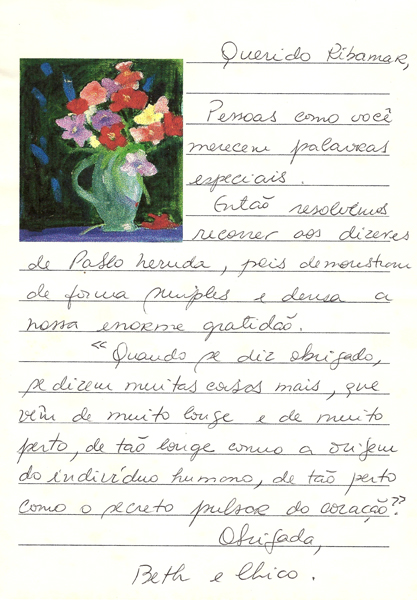 Querido Ribamar,
Pessoas como você
merecem palavras
especiais.
Então resolvemos
recorrer aos dizeres
de Pablo Neruda, pois demonstram
de forma simples e densa a
nossa enorme gratidão.
“Quando se diz obrigado,
se dizem muitas coisas mais, que
vêm de muito longe e de muito
perto, de tão longe como a origem
do indivíduo humano, de tão perto
como o secreto pulsar do coração”.
Obrigada,
Beth e Chico.